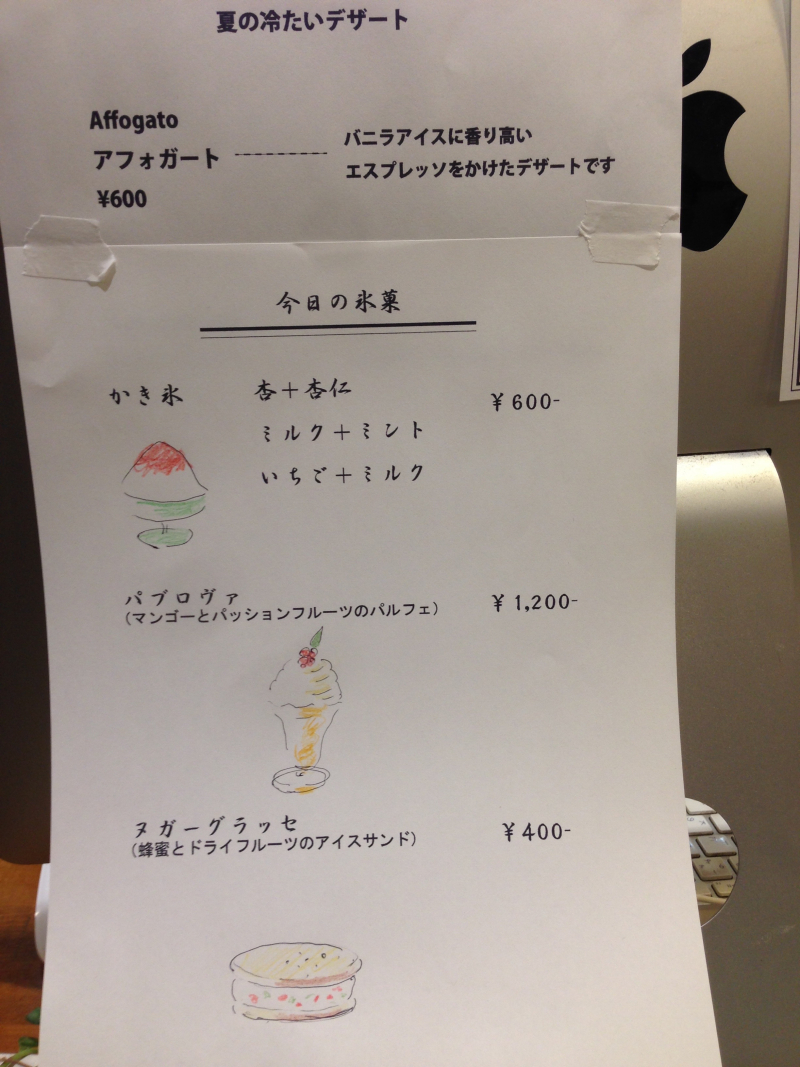 夏の冷たいデザート
Affogato
アフォガート ---------- バニラアイスに香り高い
¥600 エスプレッソをかけたデザートです
今日の氷菓
かき氷 杏+杏仁 ¥600-
ミルク+ミント
いちご+ミルク
パブロヴァ ¥1,200-
(マンゴーとパッションフルーツのパルフェ)
ヌガーグラッセ ¥400-
(蜂蜜とドライフルーツのアイスサンド)